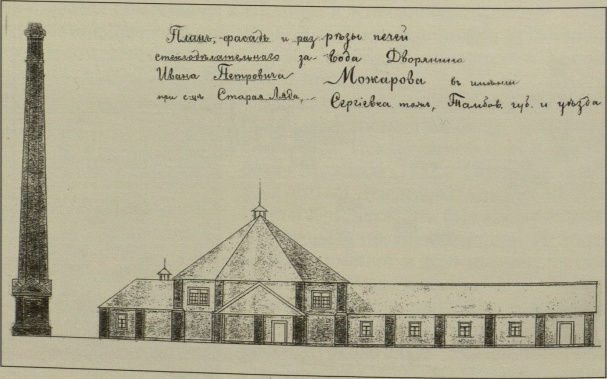 Планъ, фасадъ и разрѣзы печей
стеклодѣлательнаго завода Дворянина
Ивана Петровича Можарова въ имѣнiи
при с-цѣ Старая Ляда, Сергiевка тожъ, Тамбов. губ. и уѣзда